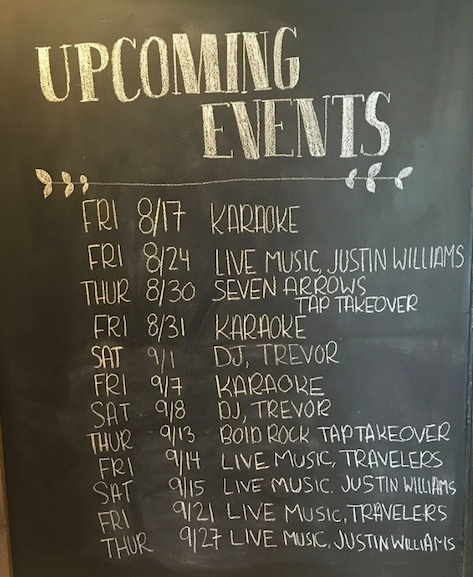 UPCOMING
EVENTS
FRI 8/17 KARAOKE
FRI 8/24 LIVE MUSIC, JUSTIN WILLIAMS
THUR 8/30 SEVEN ARROWS
TAP TAKEOVER
FRI 8/31 KARAOKE
SAT 9/1 DJ, TREVOR
FRI 9/7 KARAOKE
SAT 9/8 DJ, TREVOR
THUR 9/13 BOID ROCK TAP TAKEOVER
FRI 9/14 LIVE MUSIC, TRAVELERS
SAT 9/15 LIVE MUSIC. JUSTIN WILLIAMS
FRI 9/21 LIVE MUSIC, TRAVELERS
THUR 9/27 LIVE MUSIC, JUSTIN WILLIAMS